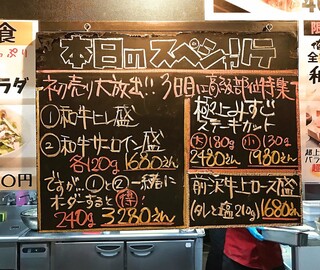 本日のスペシャリテ
初売り大放出!! 3日間 高級部位特集
①和牛ヒレ盛
②和牛サーロイン盛
各120g 1680えん
ですが、①と②一緒に
オーダーすると 得!
240g 3280えん
極上みすじ
ステーキカット
大 180g 小 130g
2480えん 1980えん
前沢牛上ロース盛
(タレと塩210g) 1680えん
食
ラダ
0円